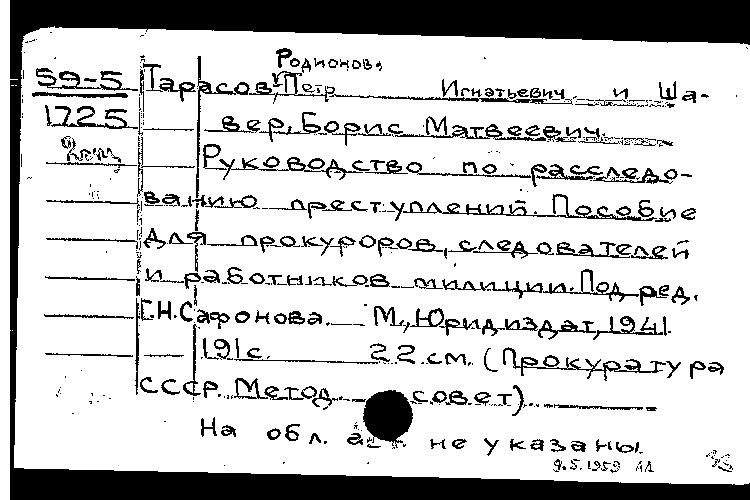 Родионов,
59-5 Тарасов-Петр Игнатьевич и Ша-
1725 вер, Борис Матвеевич.
2 экз Руководство по расследо-
ванию преступлений. Пособие
для прокуроров, следователей
и работников милиции. Под ред.
Г.Н. Сафонова. М., Юридиздат, 1941.
191 с. 22 см. (Прокуратура
СССР. Метод. совет).
На обл. авт. не указаны.
9.5.1959